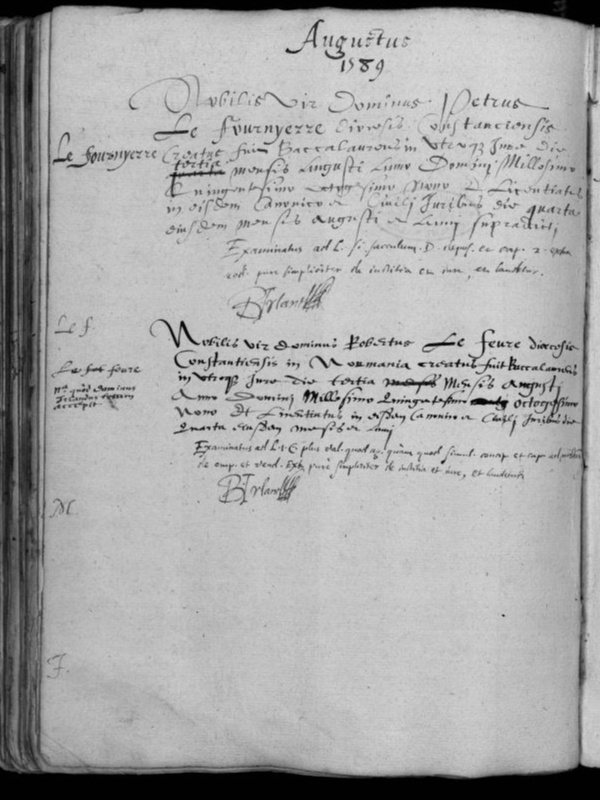 Augustus
1589
Nobilis vir Dominus Petrus
Le fournyerre diocesis Constanciensis
Le fournyerre
Creatus fuit Baccalaureus in Utroq3 Jure die
tertia
quarta mensis Augusti Anno Domini Millesimo
Quingentesimo octogesimo Nono Et Licentiatus
in eisdem Canonico et Civilj Juribus die quarta
eiusdem mensis Augusti et Anni supradicti
Examinatus ad L. si
pure simpliciter de iustitia et iure, et laudetur.
BIrland
Le f.
Nobilis vir dominus Robertus Le feure diocesis
Constantiensis in Normania creatus fuit Baccalaureus
in utroq3 Jure die tertia mensis Augustj
Anno dominj Millesimo Quingentesimo octogesimo
Nono Et Licentiatus in eisdem Canonico et Civilj Juribus die
Quarta eiusdem mensis et Annj
Le feure
accepit
Examinatus ad L.
de emp. et vend. pure simpliciter de iustitia et iure, et laudetur
BIrland
M.
F.